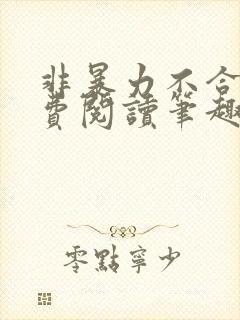 非暴力不合
費閱讀筆趣
零點寧少